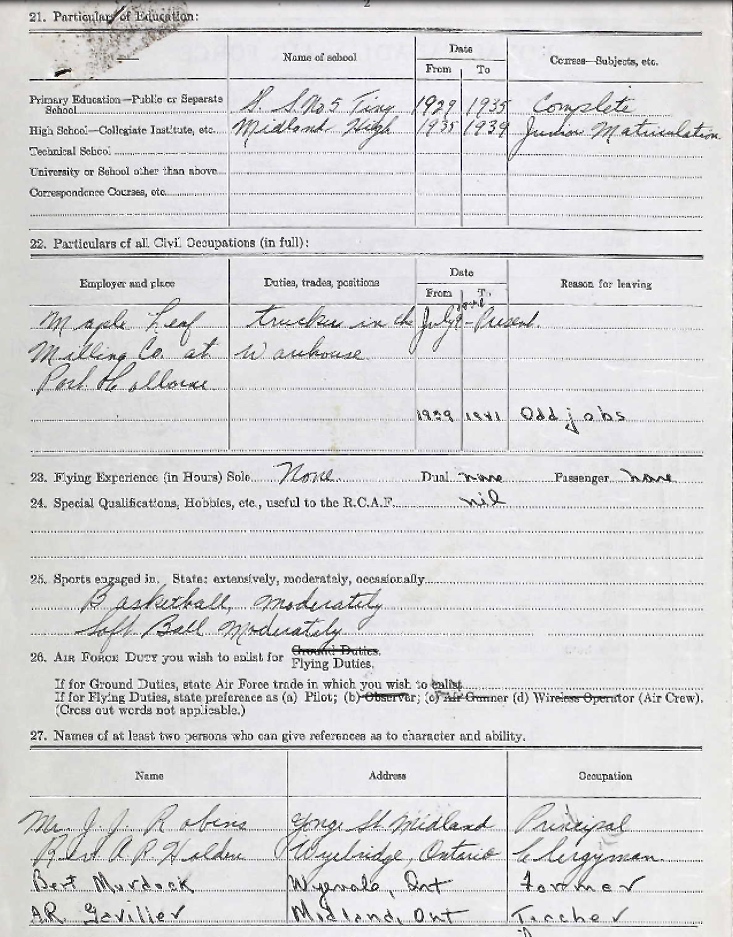 2
21. Particulars of Education:
Name of school Date Courses—Subjects, etc.
From To
Primary Education—Public or Separate School S. S. No 5 Tiny 1929 1935 Complete
High School—Collegiate Institute, etc. Midland High 1935 1939 Junior Matriculation
Technical School
University or School other than above
Correspondence Courses, etc.
22. Particulars of all Civil Occupations (in full):
Employer and place Duties, trades, positions Date Reason for leaving
From To
Maple Leaf trucker in the July - Present.
Milling Co. at Warehouse
Port Colborne
1939 1941 Odd jobs
23. Flying Experience (in Hours) Solo None Dual none Passenger none
24. Special Qualifications, Hobbies, etc., useful to the R.C.A.F. nil
25. Sports engaged in. State: extensively, moderately, occasionally
Basketball, moderately
Soft Ball Moderately
26. AIR FORCE DUTY you wish to enlist for Ground Duties.
Flying Duties.
If for Ground Duties, state Air Force trade in which you wish to enlist
If for Flying Duties, state preference as (a) Pilot; (b) Observer; (c) Air Gunner (d) Wireless Operator (Air Crew).
(Cross out words not applicable.)
27. Names of at least two persons who can give references as to character and ability.
Name Address Occupation
Mr. J. J. Robins Yonge St Midland Principal
A P Holden Wyebridge, Ontario Clergyman
Bert Murdock Wyevale, Ont Farmer
A.R. Midland, Ont Teacher